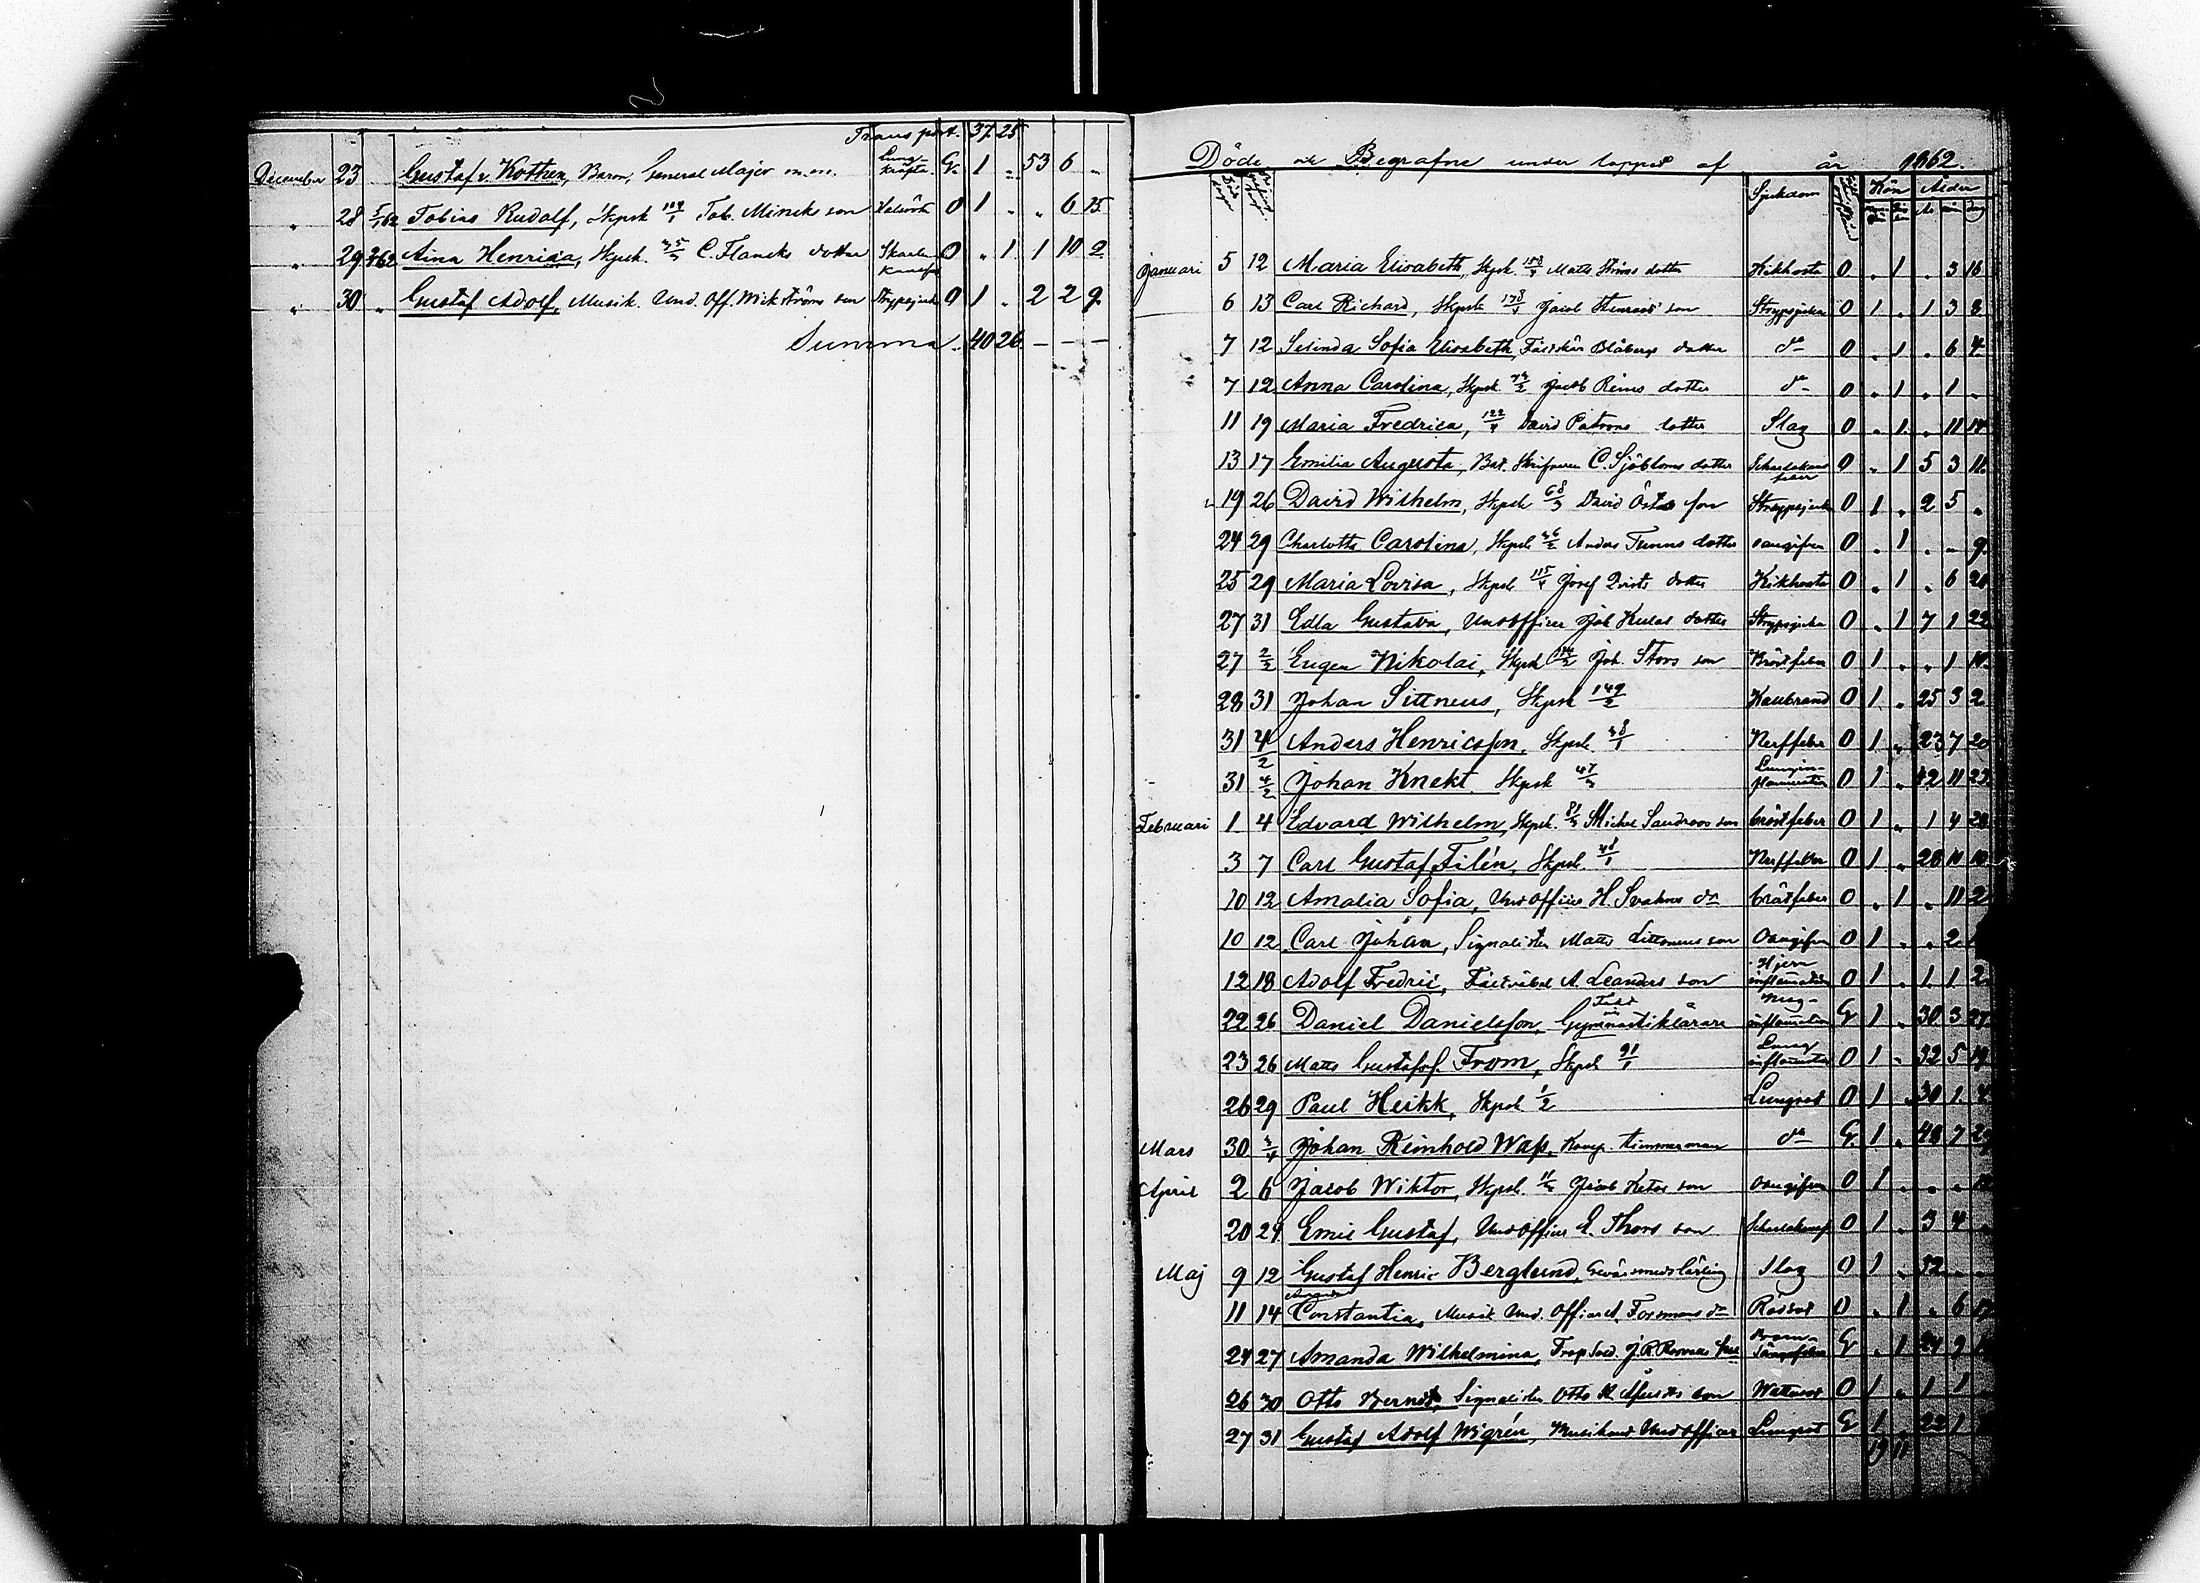 Transport. 37 25
December 23 Gustaf v. Kothen, Baron, General Major m.m. Lungkräfta G 1 „ 53 6 „
„ 28 5/1 62 Tobias Rudolf, Skpsk Tob. Mincks son Halsröta O 1 „ „ 6 15
„ 29 62 Aina Henrica, Skpsk. C. Flancks dotter O „ 1 1 10 2
„ 30 „ Gustaf Adolf, Musik. Und. Off. Wikströms son Strypsjuka O 1 „ 2 2 9
Summa. 40 26 — — —
Döde och Begrafne under loppet af år 1862.
Sjukdom Kön Ålder
Januari 5 12 Maria Elisabeth, Skpsk. Matts Ströms dotter Kikhosta O „ 1 „ 3 16
6 13 Carl Richard, Skpsk Jacob son Strypsjuka O 1 „ 1 3 8
7 12 Selinda Sofia Elisabeth, Fältskär Blåbergs dotter do O „ 1 „ 6 4
7 12 Anna Carolina, Skpsk Jacob Reims dotter do O „ 1 „ 1 „
11 19 Maria Fredrica, 122/4 David Patrons dotter Slag O „ 1 „ 11 14
13 17 Emilia Augusta, Bat. Skrifvaren C. Sjöbloms dotter O „ 1 5 3 11
„ 19 26 David Wilhelm, Skpsk 68/3 David Östs son Strypsjuka O 1 „ 2 5 „
24 29 Charlotta Carolina, Skpsk Anders Tunns dotter oangifven O „ 1 „ „ 9
25 29 Maria Lovisa, Skpsk 115/4 Josef Qvists dotter Kikhosta O „ 1 „ 6 21
27 31 Edla Gustava, Undofficer Joh Kulas dotter Strypsjuka O „ 1 7 1 22
27 2/2 Eugen Nikolai, Skpsk Joh. Stors son Bröstfeber O 1 „ „ 1 10
28 31 Johan Sittneus, Skpsk 149/2 Kallbrand O 1 „ 25 3 2
31 4/2 Anders Henricsson, Skpsk. 38/1 Nerffeber O 1 „ 23 7 20
31 4/2 Johan Knekt Skpsk 47/3 O 1 „ 42 11 23
Februari 1 4 Edvard Wilhelm, Skpsk. Michel Sandroos son bröstfeber O 1 „ 1 4 28
3 7 Carl Gustaf Filén, Skpsk. Nerffeber O 1 „ 28 10 10
10 12 Amalia Sofia, Undofficer H. Svahns dr bröstfeber O „ 1 „ 11 2
10 12 Carl Johan, Signalisten Matts Littoneus son Oangifven O 1 „ „ 2
12 18 Adolf Fredric, Fältväbel A. Leanders son Hjern inflamation O 1 „ 1 1 2
22 26 Daniel Danielsson, Gymnastiklärare Mag-inflamation G 1 „ 30 3 27
23 26 Matts Gustafss. From, Skpsk 91/1 Lung inflamation O 1 „ 32 5 19
26 29 Paul Heikk, Skpsk 1/2 Lungsot O 1 „ 30 1 4
Mars 30 3/4 Johan Reinhold Wass, Komp. timmerman do G. 1 „ 48 7 25
April 2 6 Jacob Wiktor, Skpsk. Jacob Ketos son Oangifven O 1 „ „ „
20 24 Emil Gustaf, Undofficer E. Thors son O 1 „ 3 4 „
Maj 9 12 Gustaf Henric Berglund, Gevärsmedslärling Slag O 1 „ 32 „ „
Amanda
11 14 Constantia, Musik Und. Officer A. Forsmans dr Rödsot O „ 1 „ 6
24 27 Amanda Wilhelmina, J. R. G „ 1 24 9
26 30 Otto Berndt, Signalisten Otto son Wattusot O 1 „ 1 1 „
27 31 Gustaf Adolf Wigrén, Musikant Undofficer Lungsot G 1 22 1
19 11